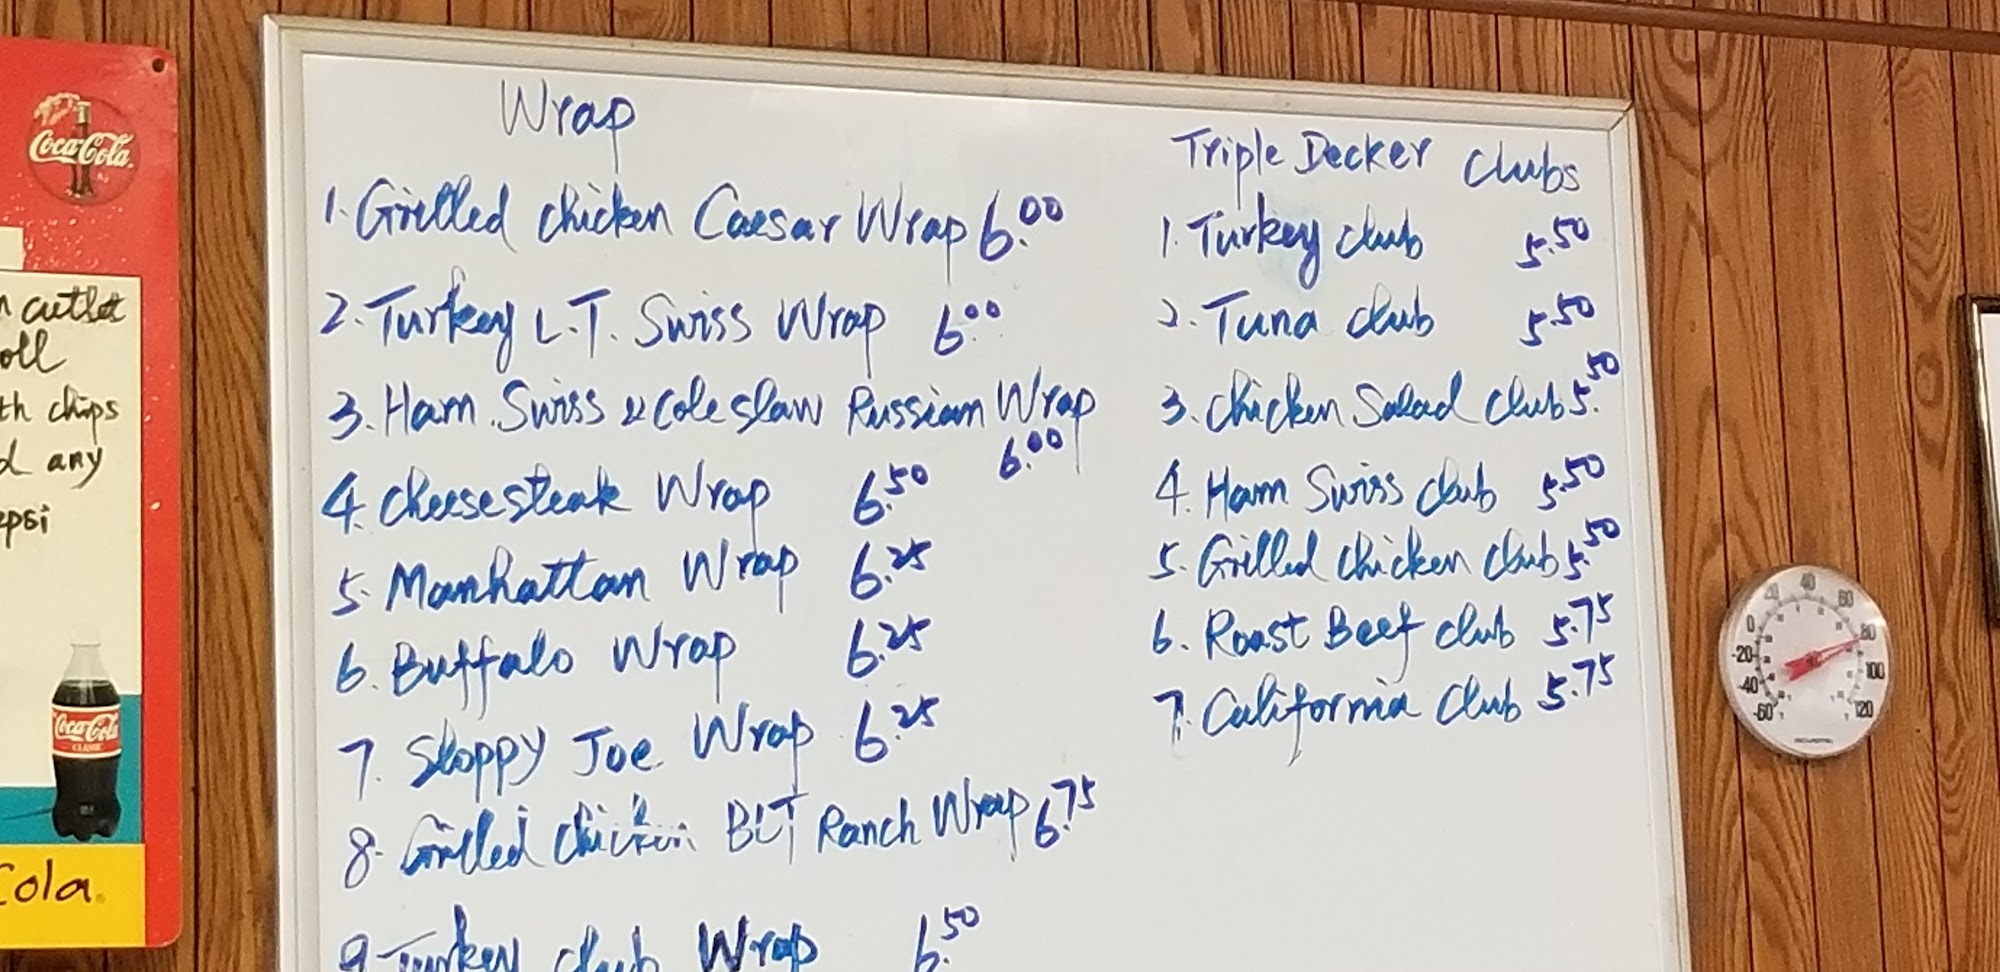 Coca-Cola
cutlet
oll
th chips
d any
epsi
Coca-Cola
CLASSIC
Cola
Wrap
1. Grilled chicken Caesar Wrap 6.00
2. Turkey L.T. Swiss Wrap 6.00
3. Ham. Swiss & Coleslaw Russian Wrap
6.00
4. Cheesesteak Wrap 6.50
5. Manhattan Wrap 6.25
6. Buffalo Wrap 6.25
7. Sloppy Joe Wrap 6.25
8. Grilled chicken BLT Ranch Wrap 6.75
9. Turkey club Wrap 6.50
Triple Decker Clubs
1. Turkey club 5.50
2. Tuna club 5.50
3. Chicken Salad Club 5.50
4. Ham Swiss club 5.50
5. Grilled chicken club 5.50
6. Roast Beef club 5.75
7. California Club 5.75
-60 -40 -20 0 20 40 60 80 100 120